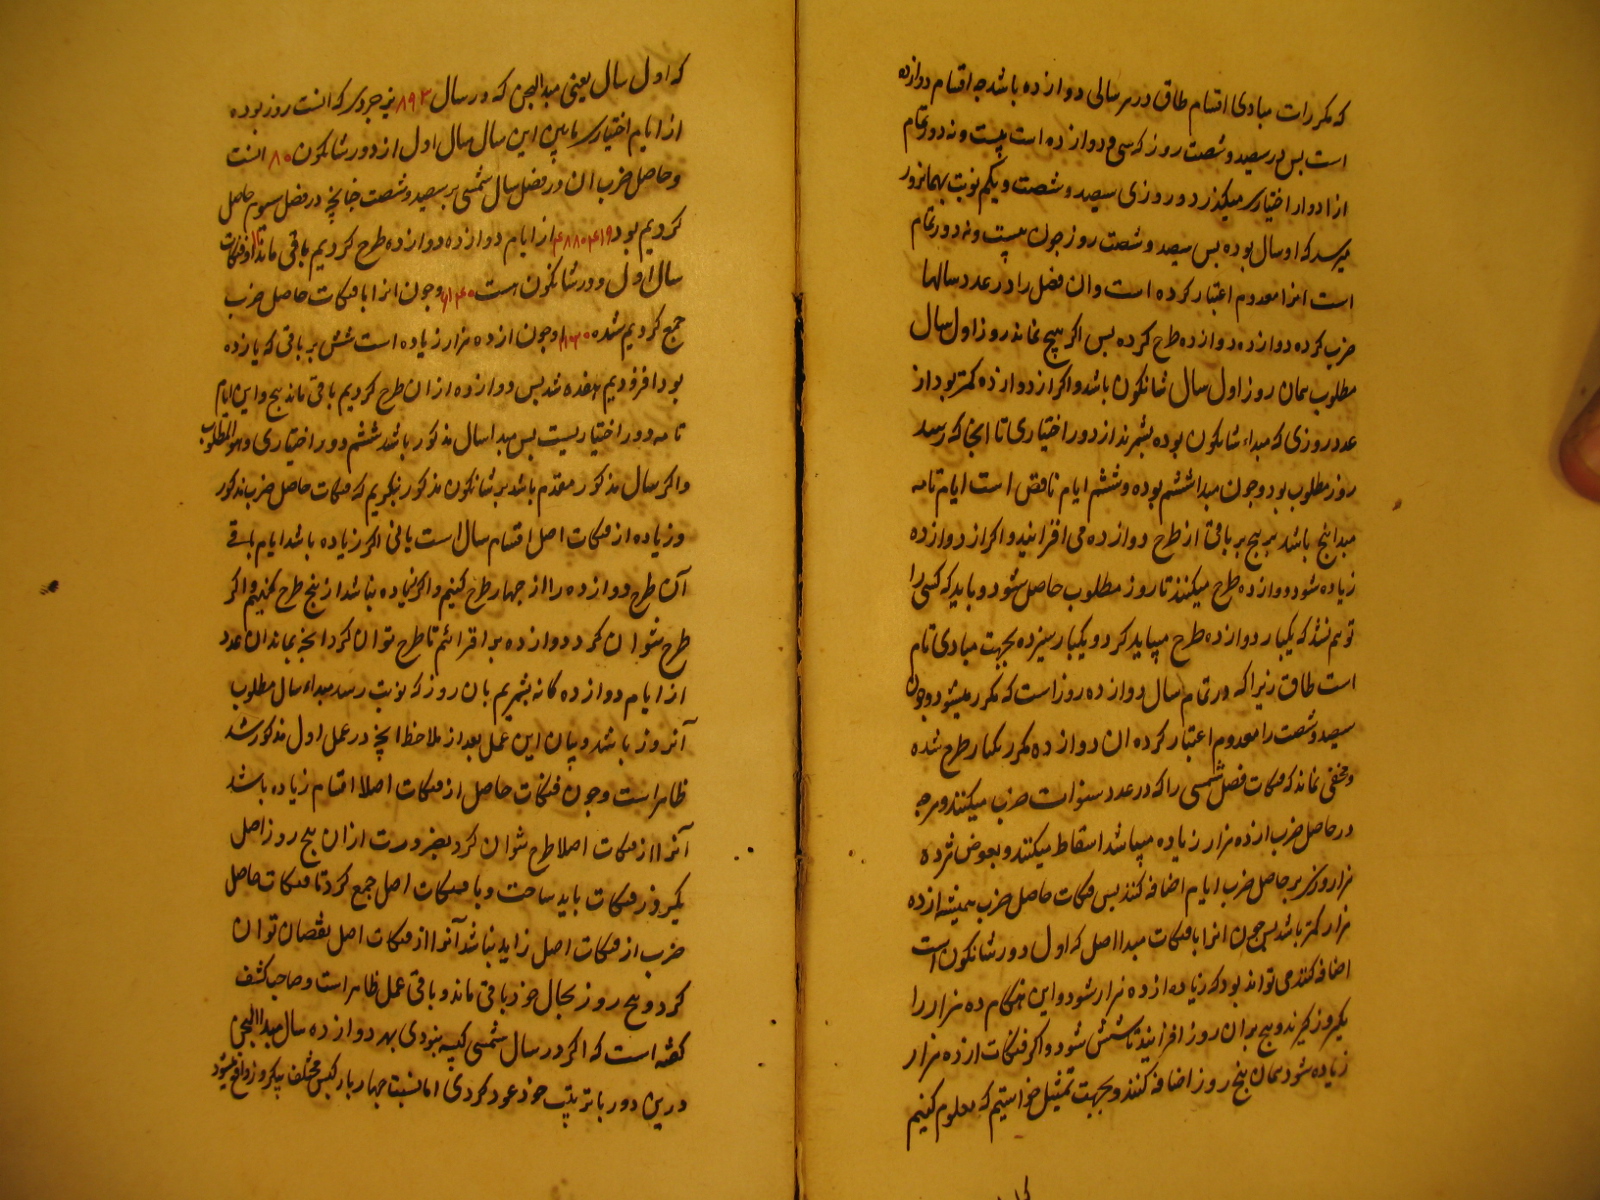 که مکررات مبادی اقسام طاق در هر سالی دوازده باشد چه اقسام دوازده
است پس در سیصد و شصت روز که سی دوازده است بیست و نه دور تمام
از ادوار اختیاری میگذرد و روزی سیصد و شصت و یکم نوبت بهمانروز
میرسد که اول سال بوده پس سیصد و شصت روز چون بیست و نه دور تمام
است انرا معدوم اعتبار کرده است و ان فضل را در عدد سالها
ضرب کرده دوازده دوازده طرح کرده پس اگر هیچ نماند روز اول سال
مطلوب همان روز اول سال شانکون باشد و اگر از دوازده کمتر بود از
عدد روزی که مبداء شانکون بوده بشمرند از دور اختیاری تا انجا که رسد
روز مطلوب بود و چون مبدا ششم بوده و ششم ایام ناقص است ایام تامه
مبدا پنج باشد پس پنج بر باقی از طرح دوازده می افزایند و اگر از دوازده
زیاده شود دوازده طرح میکنند تا روز مطلوب حاصل شود و باید که کسی را
توهم نشود که یکبار دوازده طرح میباید کرد و یکبار سیزده بجهت مبادی تام
است طاق زیرا که در تمام سال دوازده روز است که مکرر میشود و چون
سیصد و شصت را معدوم اعتبار کرده ان دوازده مکرر یکبار طرح شده
و مخفی نماند که فنکات فضل شمسی را که در عدد سنوات ضرب میکنند و هر چه
در حاصل ضرب از ده هزار زیاده میباشد اسقاط میکنند و بعوض هر ده
هزار روزی بر حاصل ضرب ایام اضافه کنند پس فنکات حاصل ضرب همیشه از ده
هزار کمتر باشد پس چون انرا با فنکات مبدا اصل که اول دور شانکون است
اضافه کنند می تواند بود که زیاده از ده هزار شود و این هنگام ده هزار را
یکروز گیرند و پنج بران روز افزایند تا شش شود و اگر فنکات از ده هزار
زیاده شود همان پنج روز اضافه کنند و بجهت تمثیل خواستیم که معلوم کنیم
که اول سال یعنی مبدا البحن که در سال ۸۹۳ یزجردی که انست روز بوده
از ایام اختیاری مابین این سال و سال اول از دور شانکون ۸۰ انست
و حاصل ضرب ان در فضل سال شمسی بر سیصد و شصت چنانچه در فضل سیوم حاصل
کردیم بود ۴۱۹ ۴۸۸۰ از ایام دوازده دوازده طرح کردیم باقی ماند ۱۱ و فنکات
سال اول دور شانکون است و چون انرا با فنکات حاصل ضرب
جمع کردیم شده و چون از ده هزار زیاده است شش بر باقی که یازده
بود افزودیم هفده شد پس دوازده ازان طرح کردیم باقی ماند پنج و این ایام
تامه دور اختیاریست پس مبدا سال مذکور باشد ششم دور اختیاری و هو المطلوب
و اگر سال مذکور مقدم باشد بر شانکون مذکور بنگریم که فنکات حاصل ضرب مذکور
و زیاده از فنکات اصل اقسام سال است یانی اگر زیاده باشد ایام باقی
آن طرح دوازده را از چهار طرح کنیم و اگر زیاده نباشد از پنج طرح کنیم و اگر
طرح نتوان کرد دوازده بر افزائیم تا طرح توان کرد انچه بماند ان عدد
از ایام دوازده گانه بشمریم بان روز که نوبت رسد مبداء سال مطلوب
آنروز باشد و بیان این عمل بعد از ملاحظه انچه در عمل اول مذکور شد
ظاهر است و چون فنکات حاصل از فنکات اصلا اقسام زیاده باشد
آنرا از فنکات اصلا طرح نتوان کرد بضرورت ازان پنج روز اصل
یکروز فنکات باید ساخت و با فنکات اصل جمع کرد تا فنکات حاصل
ضرب از فنکات اصل زاید نباشد آنرا از فنکات اصل نقصان توان
کرد و پنج روز بحال خود باقی ماند و باقی عمل ظاهر است و صاحب کشف
گفته است که اگر در سال شمسی کبیسه نبودی بهر دوازده سال مبدا البحن
درین دور باترتیب خود عود کردی اما نسبت چهار بار کبس مختلف یکروز واقع میشود